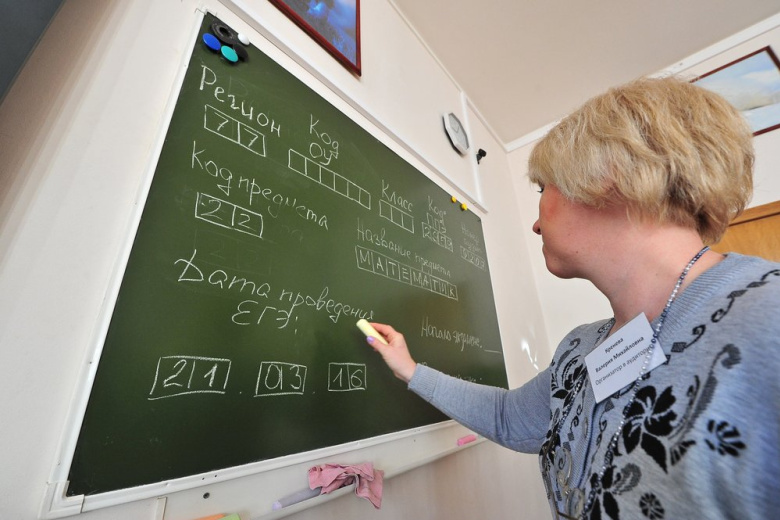 Регион
77
Код
ОУ
Класс
Код
Код предмета
22
Название предмета
МАТЕМАТИК
Дата проведения
ЕГЭ:
21.03.16
Валерия Михайловна
Организатор в аудитории